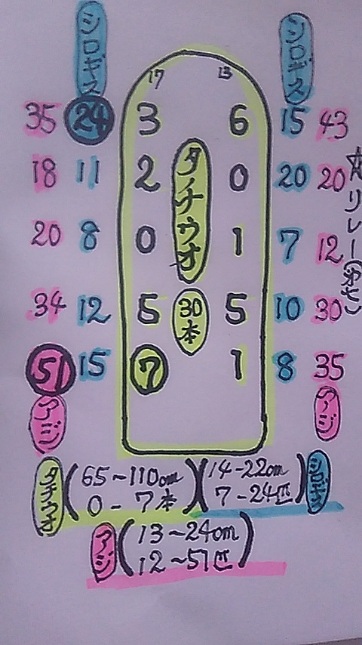 シロギス シロギス
17 13
35 24 3 6 15 43
18 11 2 0 20 20
20 8 0 1 7 12
34 12 5 5 10 30
51 15 7 1 8 35
タチウオ
30本
☆リレー
アジ アジ
タチウオ (65~110cm 0-7本)
(14-22cm 7-24匹) シロギス
アジ (13~24cm 12~51匹)